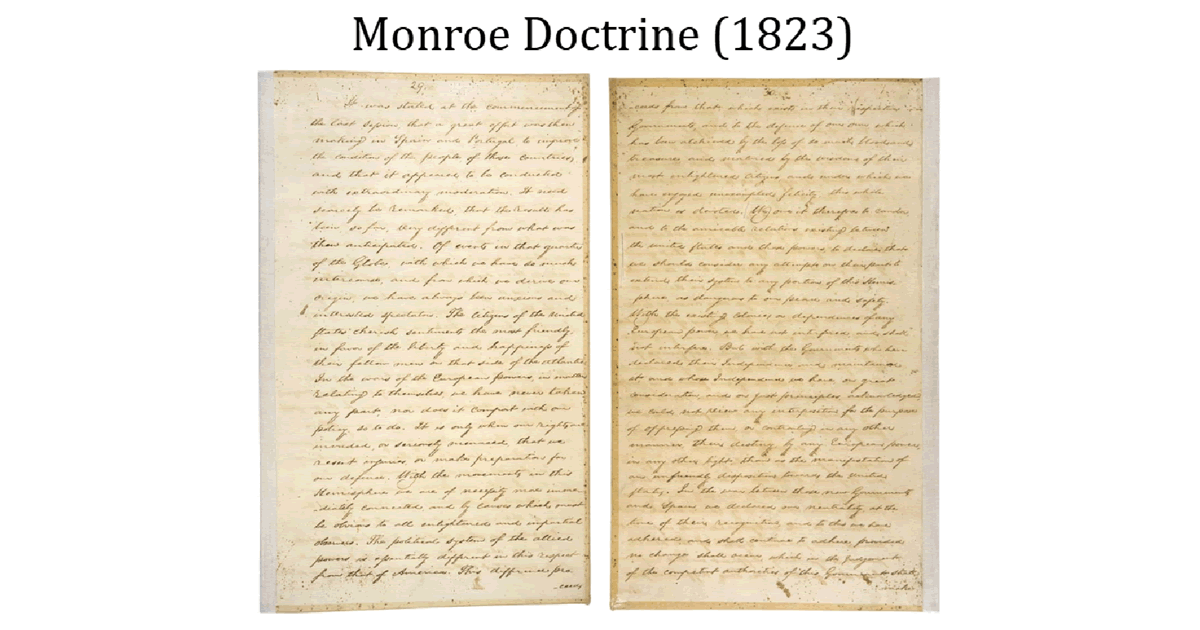 Monroe Doctrine (1823)
29.
It was stated at the commencement of
the last session, that a great effort was then
making in Spain and Portugal to improve
the condition of the people of those countries;
and that it appeared to be conducted
with extraordinary moderation. It need
scarcely be remarked, that the result has
been, so far, very different from what was
then anticipated. Of events in that quarter
of the Globe, with which we have so much
intercourse, and from which we derive our
origin, we have always been anxious and
interested spectators. The citizens of the United
States cherish sentiments the most friendly
in favor of the liberty and happiness of
their fellow men on that side of the Atlantic.
In the wars of the European powers, in matters
relating to themselves, we have never taken
any part, nor does it comport with our
policy, so to do. It is only when our rights are
invaded, or seriously menaced, that we
resent injuries, or make preparation for
our defence. With the movements in this
Hemisphere we are of necessity more imme
diately connected and by causes which must
be obvious to all enlightened and impartial
observers. The political system of the allied
powers is essentially different in this respect
from that of America. This difference pro
ceeds
ceeds from that which exists in their respective
Governments, and to the defence of our own which
has been atchieved by the loss of so much blood and
treasure and matured by the wisdom of their
most enlightened citizens and under which we
have enjoyed unexampled felicity this whole
nation is devoted. We owe it therefore to candor
and to the amicable relations existing between
the United States and those powers to declare that
we should consider any attempt on their part to
extend their system to any portion of this Hemis
phere, as dangerous to our peace and safety.
With the existing Colonies or dependencies of any
European power we have not interfered and shall
not interfere. But with the Governments who have
declared their Independence and maintained
it and whose Independence we have on great
consideration, and on just principles acknowledged
we could not view any interposition for the purpose
of oppressing them or controlling in any other
manner their destiny by any European power
in any other light than as the manifestation of
an unfriendly disposition towards the United
States. In the war between those new Governments
and Spain we declared our neutrality at the
time of their recognition and to this we have
adhered and shall continue to adhere, provided
no change shall occur which in the judgement
of the competent authorities of this Government shall
make